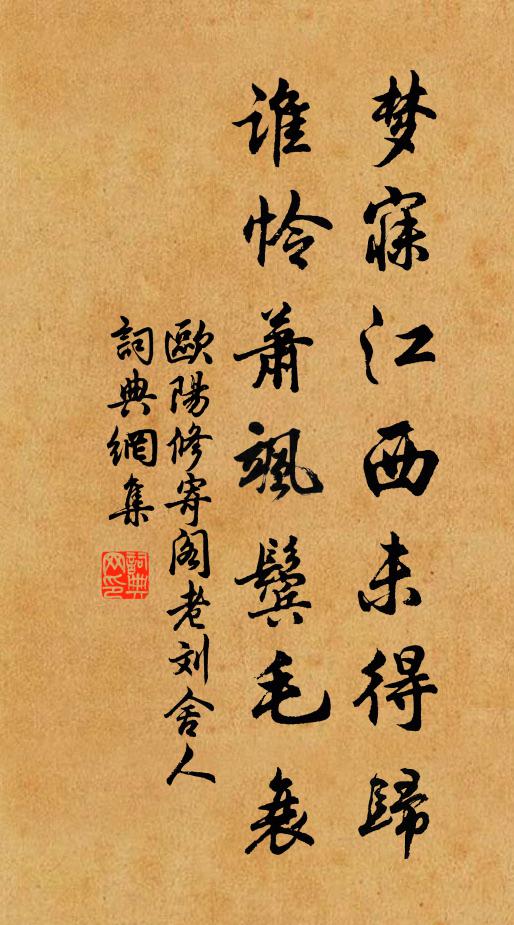 梦寐江西未得歸
谁怜萧飒鬓毛衰
歐陽修寄阁老刘舍人
詞典網集
詞典網印